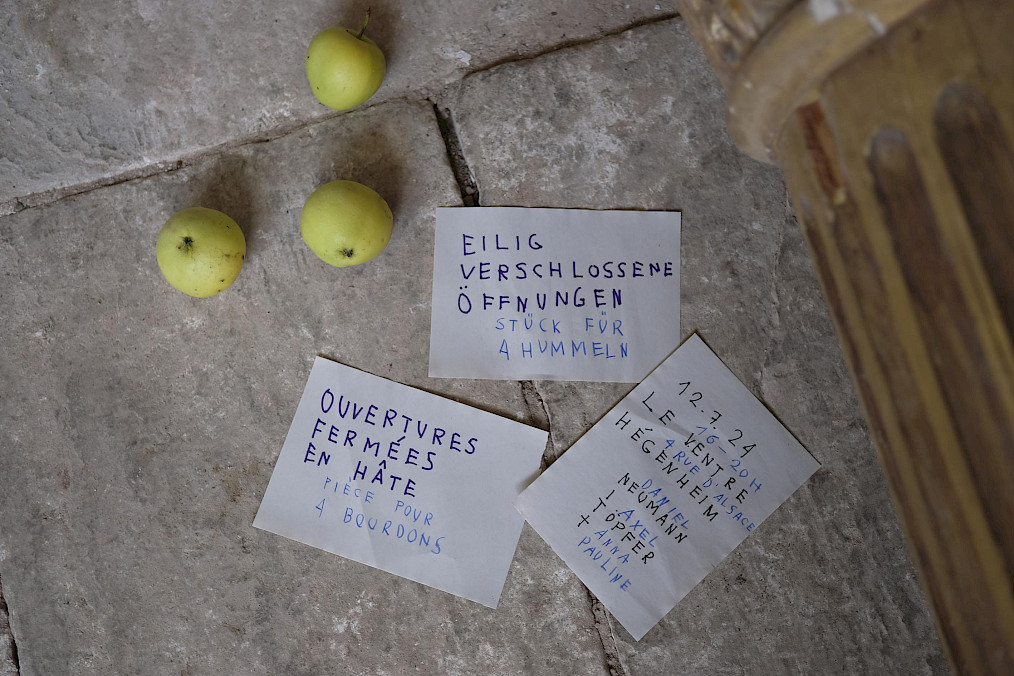 EILIG
VERSCHLOSSENE
ÖFFNUNGEN
STÜCK FÜR
4 HUMMELN
OUVERTURES
FERMÉES
EN HÂTE
PIÈCE POUR
4 BOURDONS
12.7.24
16-20H
LE VENTRE
4 RUE D'ALSACE
HÉGENHEIM
DANIEL
NEUMANN
+ AXEL
TÖPFER
+ ANNA
PAULINE